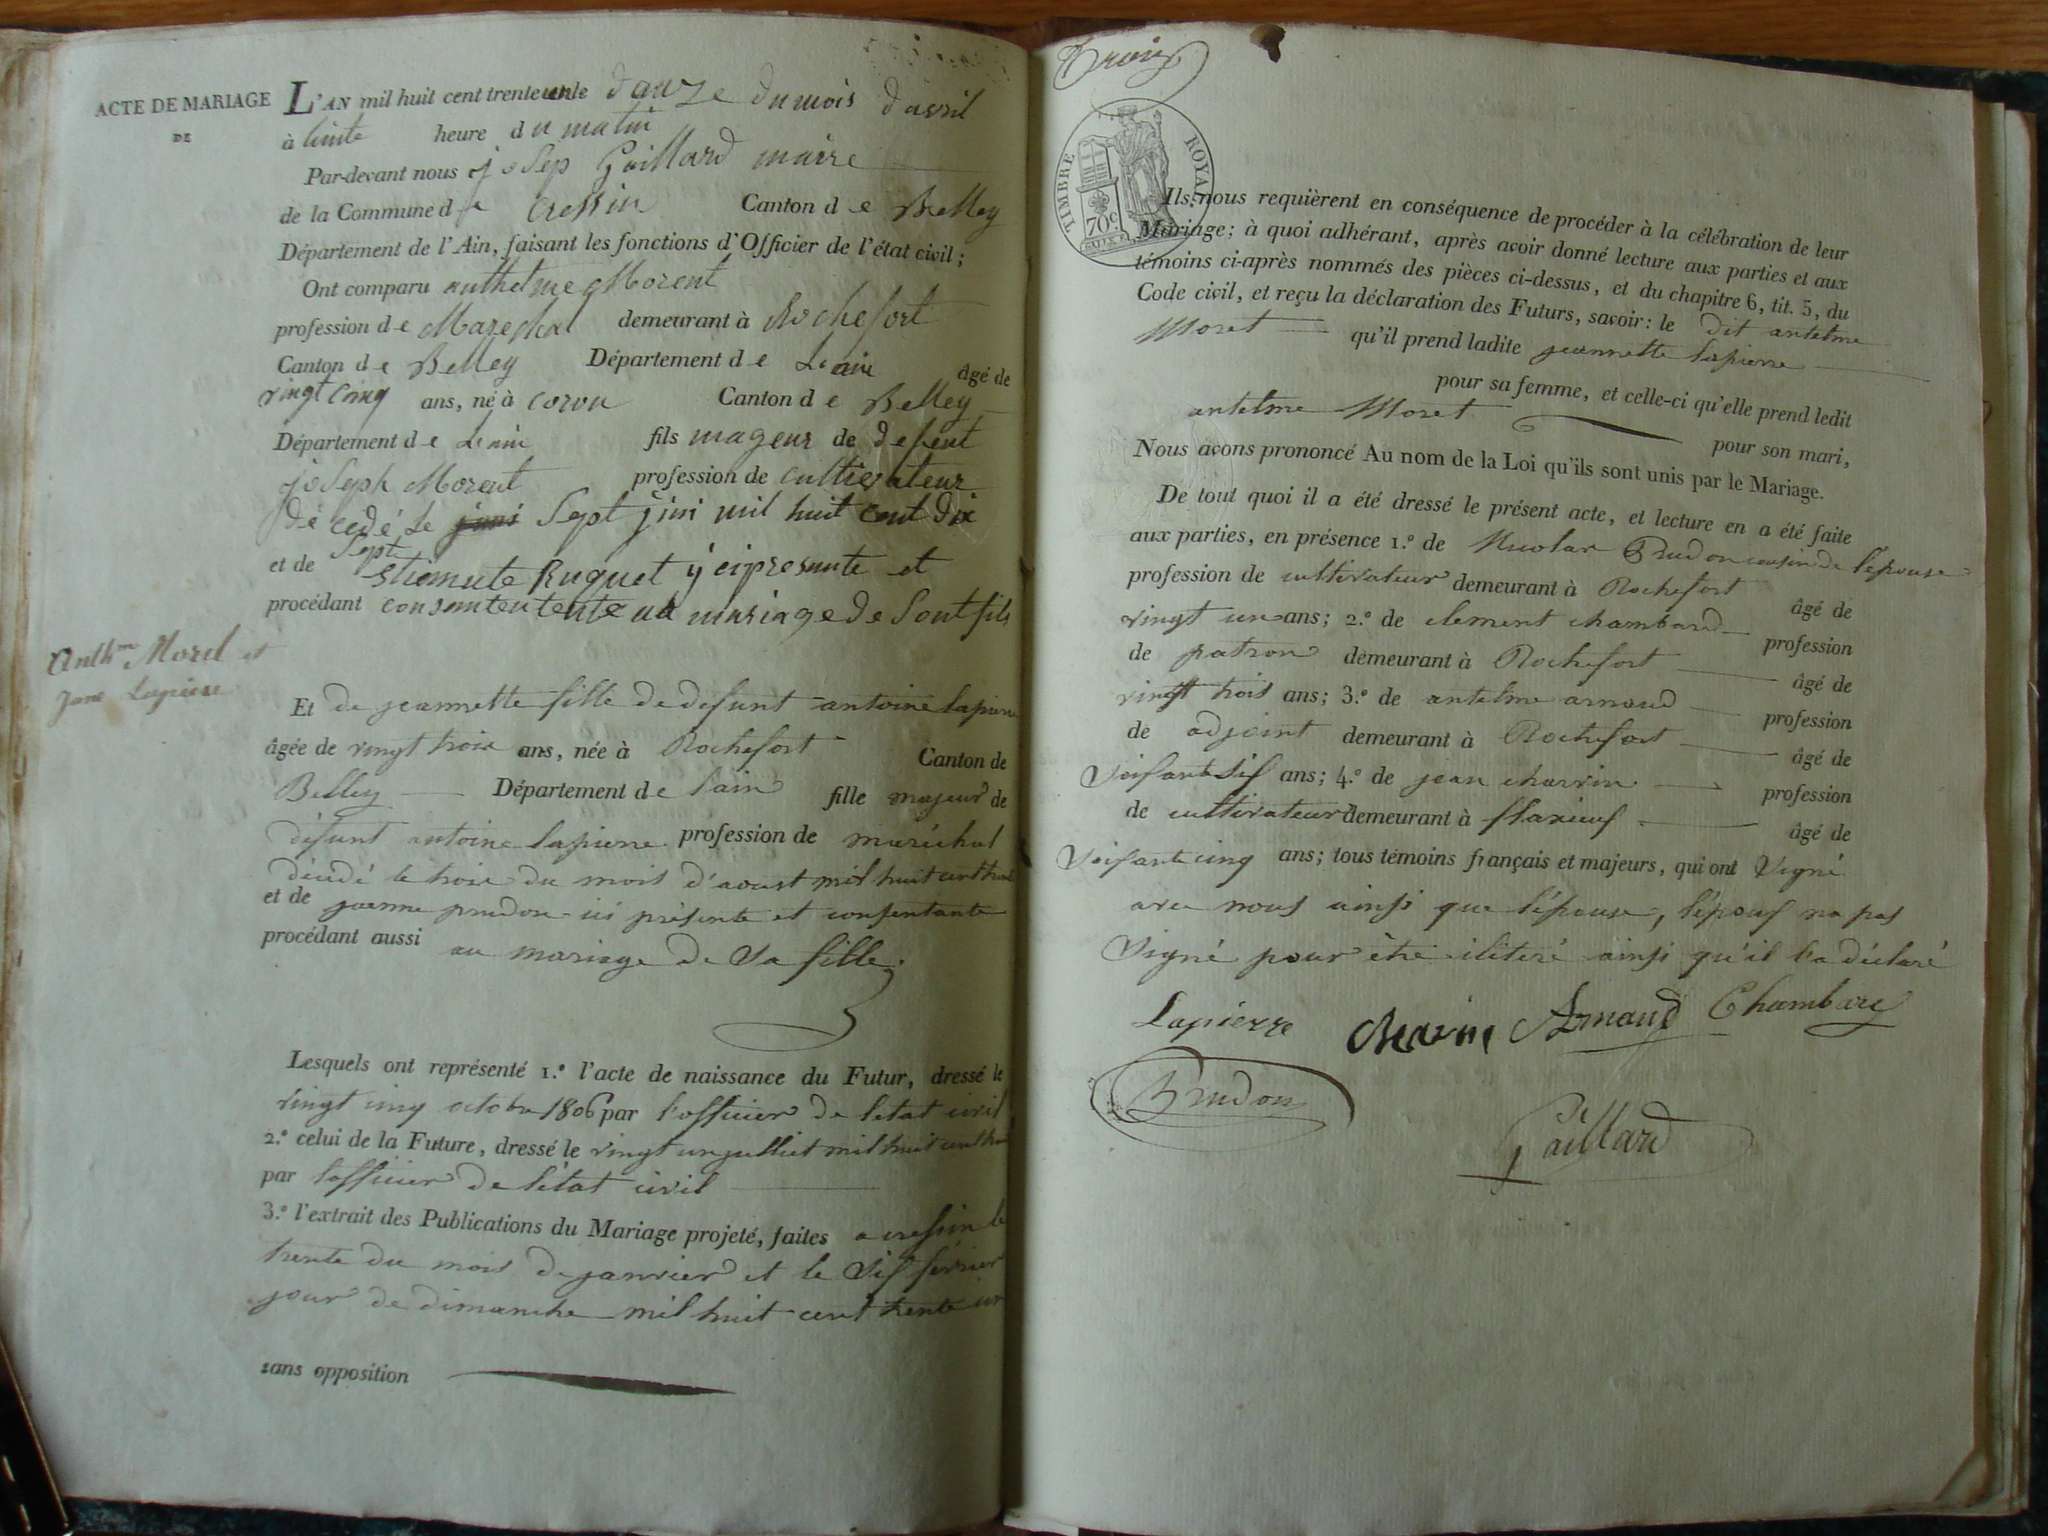 ACTE DE MARIAGE
DE
L'AN mil huit cent trente unle d'auze du mois d'avril
à huite heure du matin
Par-devant nous joSep Gaillard maire
de la Commune de Cressin Canton de Belley
Département de l'Ain, faisant les fonctions d'Officier de l'état civil;
Ont comparu anthelme Morent
profession de Marechal demeurant à Rochefort
Canton de Belley Département de Leain âgé de
vingt cinq ans, né à Coron Canton de Belley
Département de Leain fils mageur de defeut
joSeph Morent profession de cultievateur
décedé le juni Sept juin mil huit cent dix
Sept
et de Etiemute Ruguet y ci presante et
procédant consantentente au mariage de Sont fils
Anthme Morel et
Jane Lapierre
Et de jeannette fille de defunt antoine lapierre
âgée de vingt trois ans, née à Rochefort Canton de
Belley Département de l'ain fille majeur de
défunt antoine lapierre profession de maréchal
décédé le trois du mois d'aoust mil huit cent
et de jeanne prudon ici présente et consentante
procédant aussi au mariage de Sa fille.
Lesquels ont représenté 1.° l'acte de naissance du Futur, dressé le
vingt cinq octobre 1806 par l'officier de l'etat civil
2.° celui de la Future, dressé le vingt un julliet mil huit cent
par l'officier de l'état civil
3.° l'extrait des Publications du Mariage projeté, faites a cressin le
trente du mois de janvier et le Sis février
jour de dimanche mil huit cent trente un
sans opposition
Trois
TIMBRE ROYAL
70 c.
Ils nous requièrent en conséquence de procéder à la célébration de leur
Mariage; à quoi adhérant, après avoir donné lecture aux parties et aux
témoins ci-après nommés des pièces ci-dessus, et du chapitre 6, tit. 5, du
Code civil, et reçu la déclaration des Futurs, savoir: le dit antelme
Moret qu'il prend ladite jeannette lapierre
pour sa femme, et celle-ci qu'elle prend ledit
antelme Moret pour son mari,
Nous avons prononcé Au nom de la Loi qu'ils sont unis par le Mariage.
De tout quoi il a été dressé le présent acte, et lecture en a été faite
aux parties, en présence 1.° de Nicolas Prudon cousin de l'épouse
profession de cultivateur demeurant à Rochefort âgé de
vingt un ans; 2.° de clement chambard profession
de patron demeurant à Rochefort âgé de
vingt trois ans; 3.° de antelme arnaud profession
de adjoint demeurant à Rochefort âgé de
Soisante Sis ans; 4.° de jean charvin profession
de cultivateur demeurant à flaxieu âgé de
Soisante cinq ans; tous témoins français et majeurs, qui ont Signé
avec nous ainsi que l'épouse, l'épous na pas
Signé pour être iliteré ainsi qu'il l'a déclaré
Lapierre Charvin Arnaud Chambard
Prudon
Gaillard